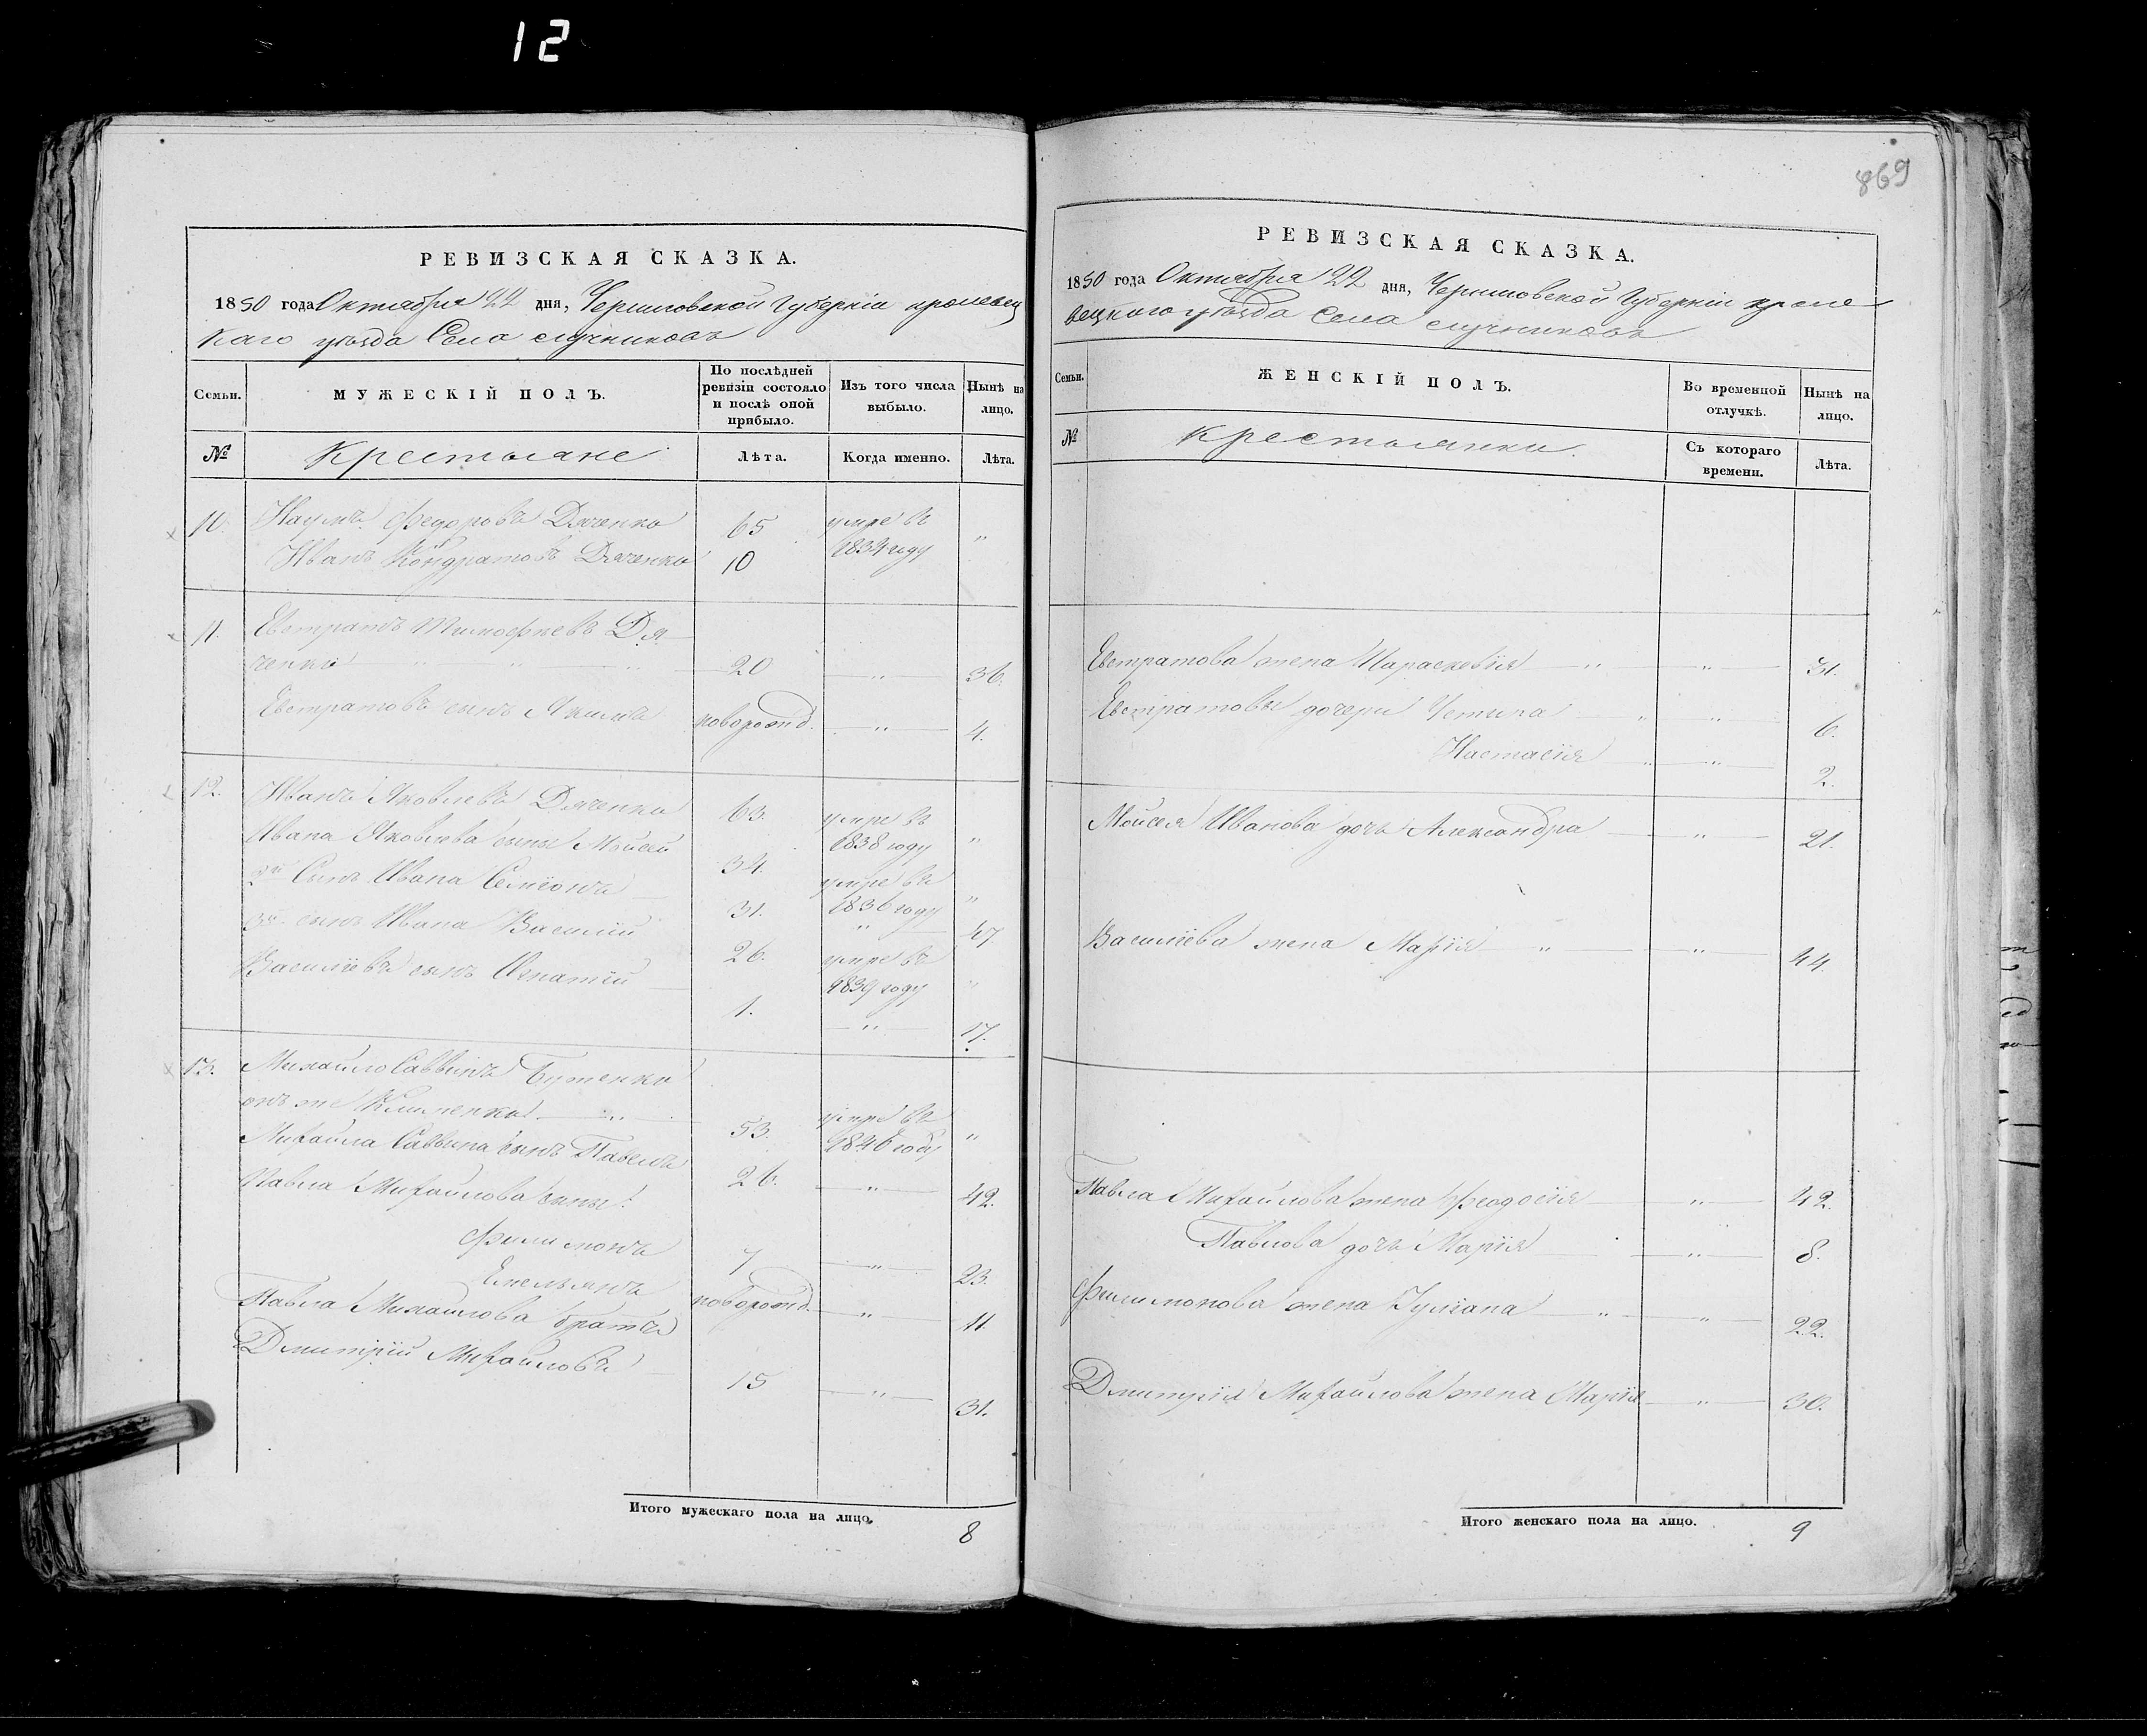 12
869
РЕВИЗСКАЯ СКАЗКА.
1850 года Октября 22 дня, Черниговской Губерніи кролевец
каго уѣзда Села случниковъ
Семьи.
МУЖЕСКІЙ ПОЛЪ.
По послѣдней ревизіи состояло и послѣ оной прибыло.
Изъ того числа выбыло.
Нынѣ на лицо.
№
Крестьяне
Лѣта.
Когда именно.
Лѣта.
10. Наумъ Федоровъ Дяченко 65 умре въ 1834 году "
Иванъ Кондратовъ Дяченко 10
11. Евстратъ Тимофѣевъ Дя
ченко " " " 20 " 36.
Евстратовъ сынъ Якимъ новорожд. " 4.
12. Иванъ Яковлевъ Дяченко 63. умре въ 1838 году "
Ивана Яковлева сыны Мойсей 34. умре въ 1836 году "
2й Сынъ Ивана Семіонъ 31. "
3й сынъ Ивана Василій 26. умре въ 1839 году 47
Василіевъ сынъ Игнатій 1. " 17.
13. Михайло Саввинъ Бутенко
онъ же Клименко " 53. умре въ 1846 году "
Михайла Саввина сынъ Павелъ 26. " 42.
Павла Михайлова сыны:
Филимонъ 7 " 23.
Емельянъ новорожд. " 11
Павла Михайлова братъ
Дмитрій Михайловъ 15 " 31.
Итого мужескаго пола на лицо. 8
РЕВИЗСКАЯ СКАЗКА.
1850 года Октября 22 дня, Черниговской Губерніи кроле
вецкого уѣзда Села случниковъ
Семьи.
ЖЕНСКІЙ ПОЛЪ.
Во временной отлучкѣ.
Нынѣ на лицо.
№
Крестьянки.
Съ котораго времени.
Лѣта.
Евстратова жена Параскевія " " 31.
Евстратовы дочери Устина " " 6.
Настасія " " 2.
Мойсея Иванова дочь Александра " 21.
Василіева жена Марія " " 44.
Павла Михайлова жена Феодосія " 42.
Павлова дочь Марія " 8.
Филимонова жена Іуліана " " 22.
Дмитрія Михайлова жена Марія " 30.
Итого женскаго пола на лицо. 9